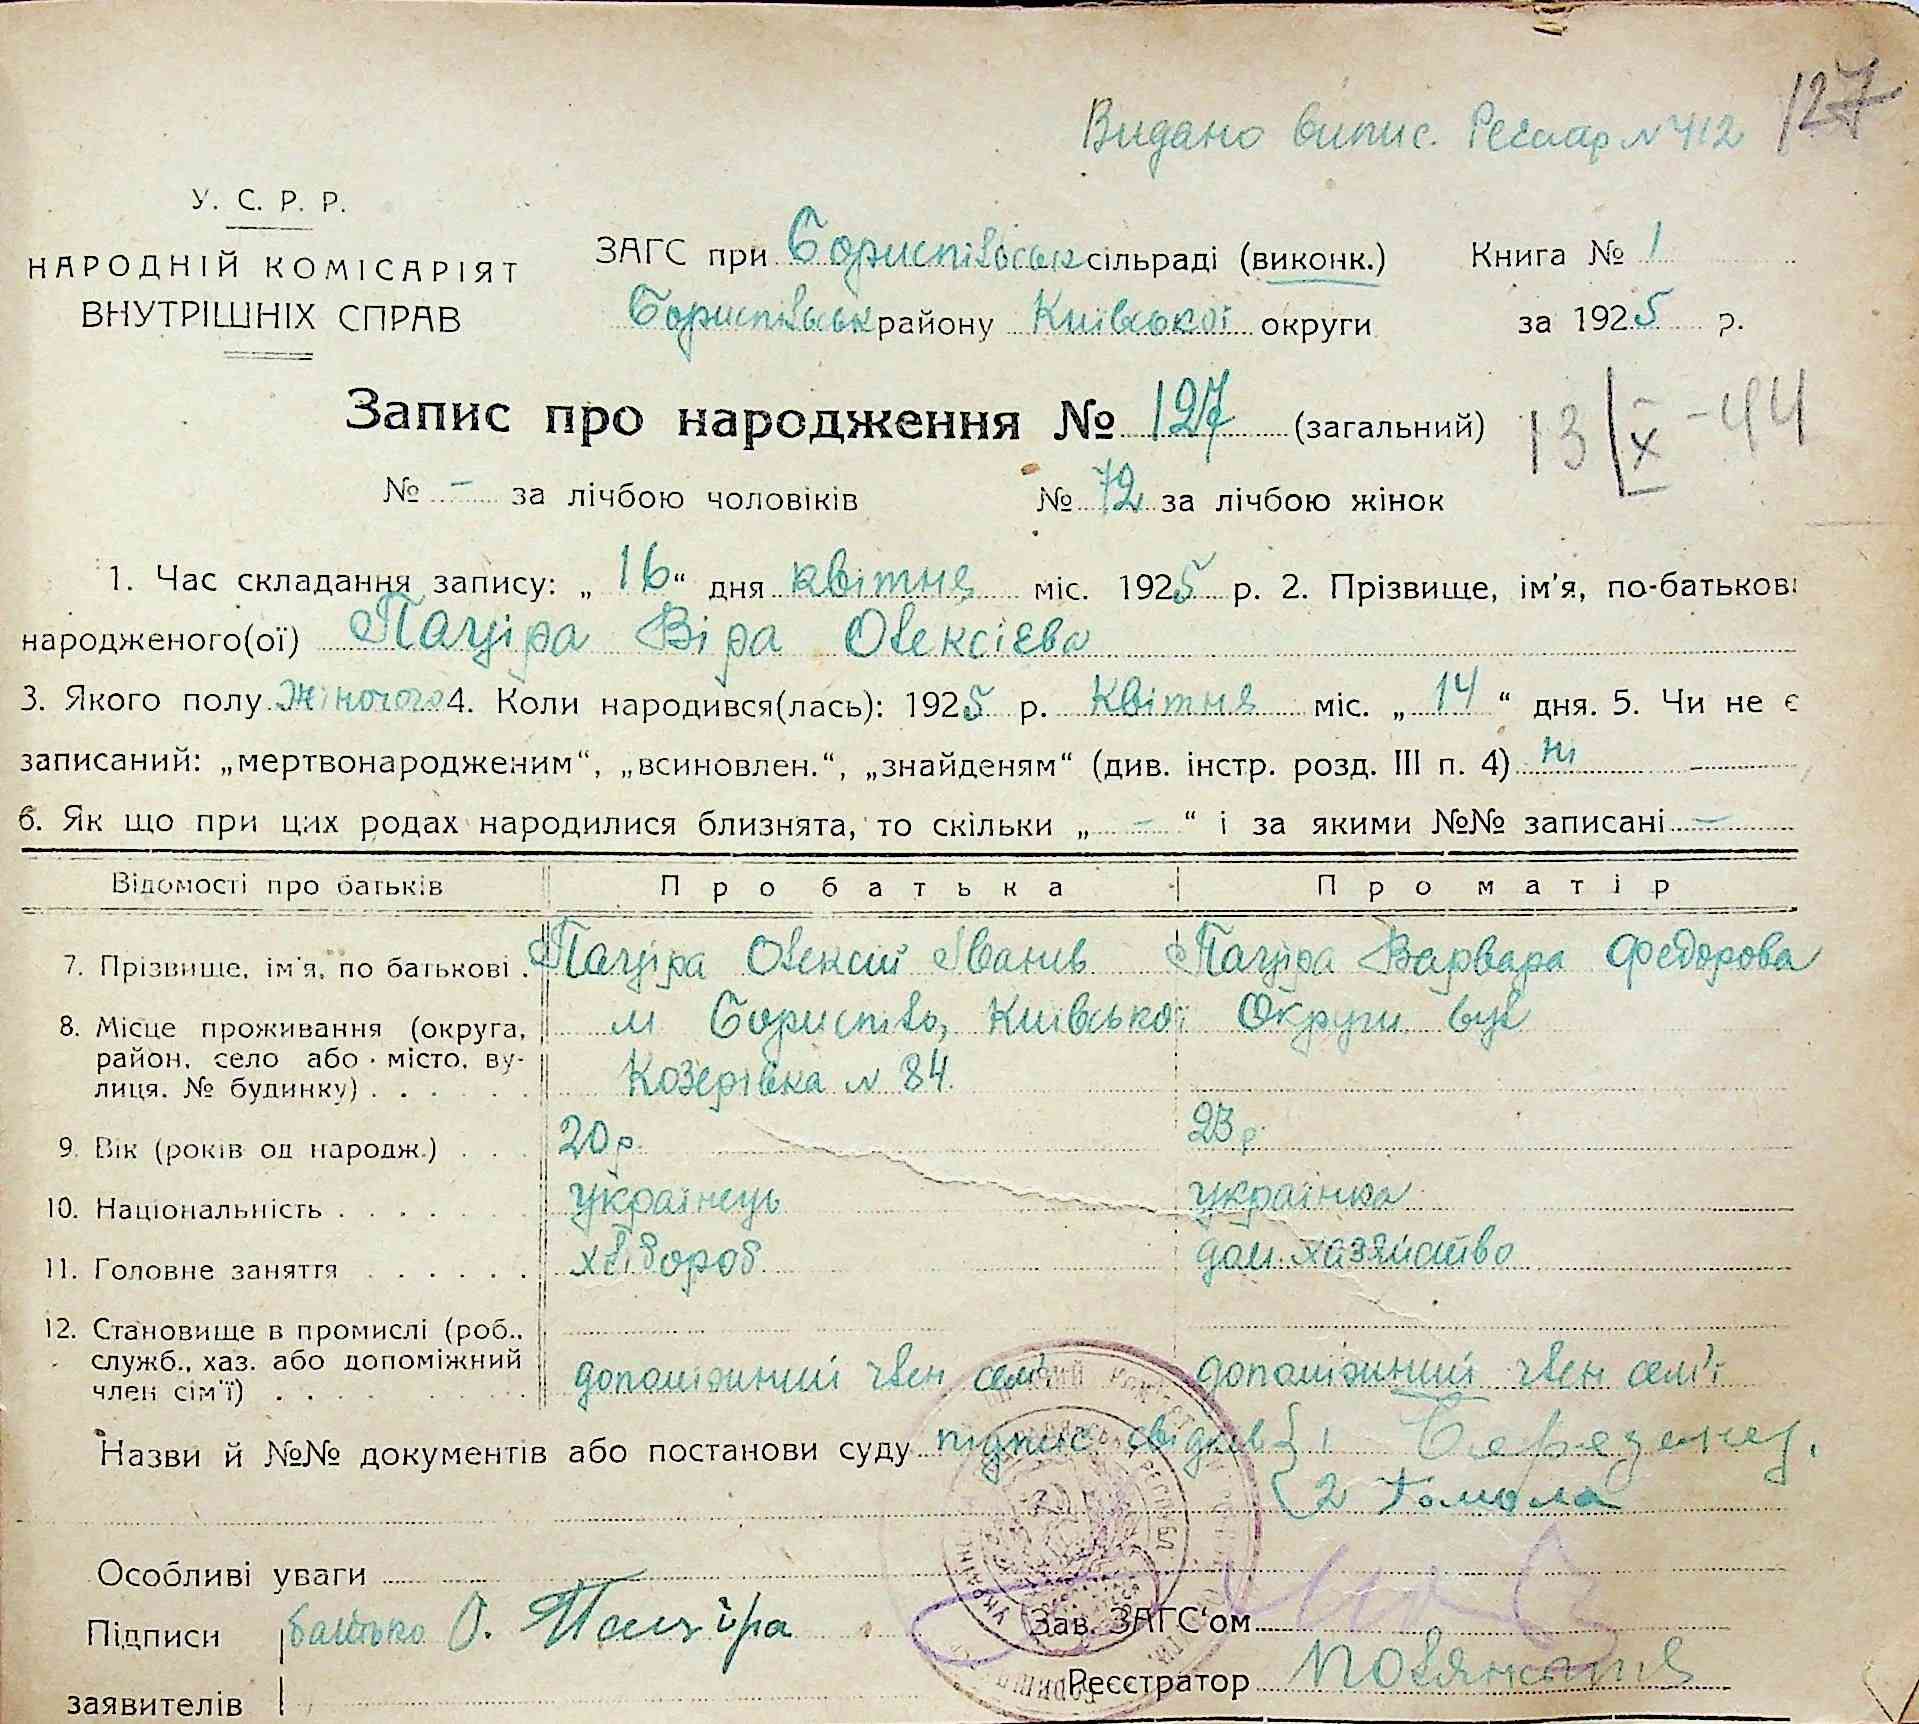 127
Видано випис. Реєстр N 412
У. С. Р. Р.
НАРОДНІЙ КОМІСАРІЯТ
ВНУТРІШНІХ СПРАВ
ЗАГС при Бориспільськ сільраді (виконк.) Книга № 1
Бориспільськ району Київської округи за 1925 р.
Запис про народження № 127 (загальний)
13/X-44
№ - за лічбою чоловіків № 72 за лічбою жінок
1. Час складання запису: „ 16 “ дня квітня міс. 1925 р. 2. Прізвище, ім'я, по-батькові
народженого(ої) Паціра Віра Олексієва
3. Якого полу жіночого 4. Коли народився(лась): 1925 р. Квітня міс. „ 14 “ дня. 5. Чи не є
записаний: „мертвонародженим“, „всиновлен.“, „знайденям“ (див. інстр. розд. III п. 4) ні
6. Як що при цих родах народилися близнята, то скільки „ - “ і за якими №№ записані -
Відомості про батьків Про батька Про матір
7. Прізвище, ім'я, по батькові . Паціра Олексій Іванів Паціра Варвара Федорова
8. Місце проживання (округа, м Бориспіль, Київської Округи вул
район, село або місто, ву- Козерівка N 84
лиця, № будинку) . . . . . .
9. Вік (років од народж.) . . . 20 р. 23 р.
10. Національність . . . . . . . українець українка
11. Головне заняття . . . . . . хлібороб дом. хазяйство
12. Становище в промислі (роб.,
служб., хаз. або допоміжний допоміжний член сем'ї допоміжний член сем'ї
член сім'ї) . . .
Назви й №№ документів або постанови суду підпис свідків 1
2
Особливі уваги
Підписи батько О. Паціра Зав. ЗАГС'ом
заявителів Реєстратор